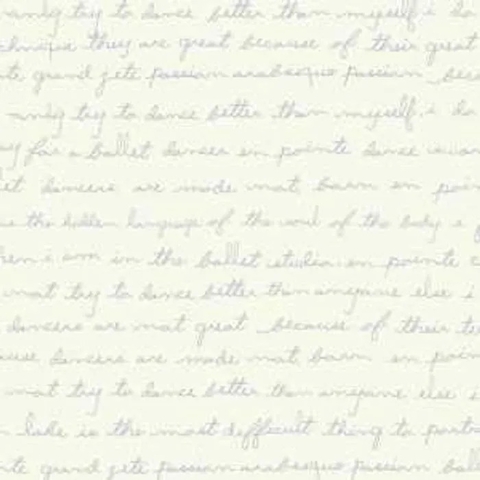 only try to dance better than myself. i do
they are great because of their great
grand jete passion arabesque passion
only try to dance better than myself. i do
for a ballet dancer en pointe dance
dancers are made not born en
the hidden language of the soul of the body
i am in the ballet studio en pointe
not try to dance better than anyone else i
dancers are not great because of their
dancers are made not born en
not try to dance better than anyone else
lake is the most difficult thing to
grand jete passion arabesque passion